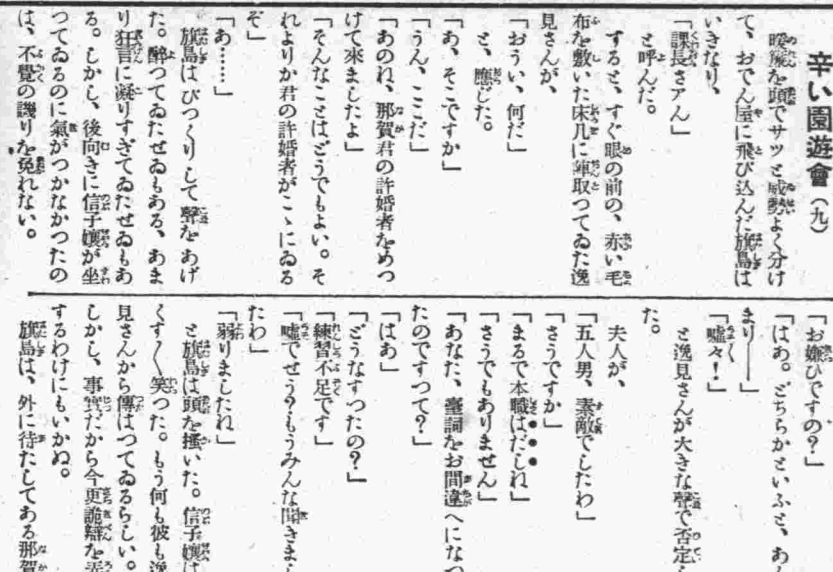 辛い園遊會（九）
暖簾を頭でサツと威勢よく分け
て、おでん屋に飛び込んだ旗島は
いきなり、
「課長さアん」
と呼んだ。
すると、すぐ眼の前の、赤い毛
布を敷いた床几に陣取つてゐた逸
見さんが、
「おうい、何だ」
と、應じた。
「あ、そこですか」
「うん、こゝだ」
「あのれ、那賀君の許婚者をめつ
けて來ましたよ」
「そんなことはどうでもよい。そ
れよりか君の許婚者がこゝにゐる
ぞ」
「あ……」
旗島はびつくりして聲をあげ
た。醉つてゐたせゐもある、あま
り狂言に凝りすぎてゐたせゐもあ
る。しかし、後向きに信子孃が坐
つてゐるのに氣がつかなかつたの
は、不覺の譏りを免れない。
「お嫌ひですの？」
「はあ。どちらかといふと、あん
まり――」
「嘘々！」
と逸見さんが大きな聲で否定し
た。
夫人が、
「五人男、素敵でしたわ」
「さうですか」
「まるで本職はだしれ」
「さうでもありません」
「あなた、臺詞をお間違へになつ
たのですつて？」
「はあ」
「どうなすつたの？」
「練習不足です」
「嘘でせう？もうみんな聞きまし
たわ」
「弱りましたれ」
と旗島は頭を搔いた。信子孃は
くす〱笑つた。もう何も彼も逸
見さんから傳はつてゐるらしい。
しかし、事實だから今更詭辯を弄
するわけにもいかぬ。
旗島は、外に待たしてある那賀